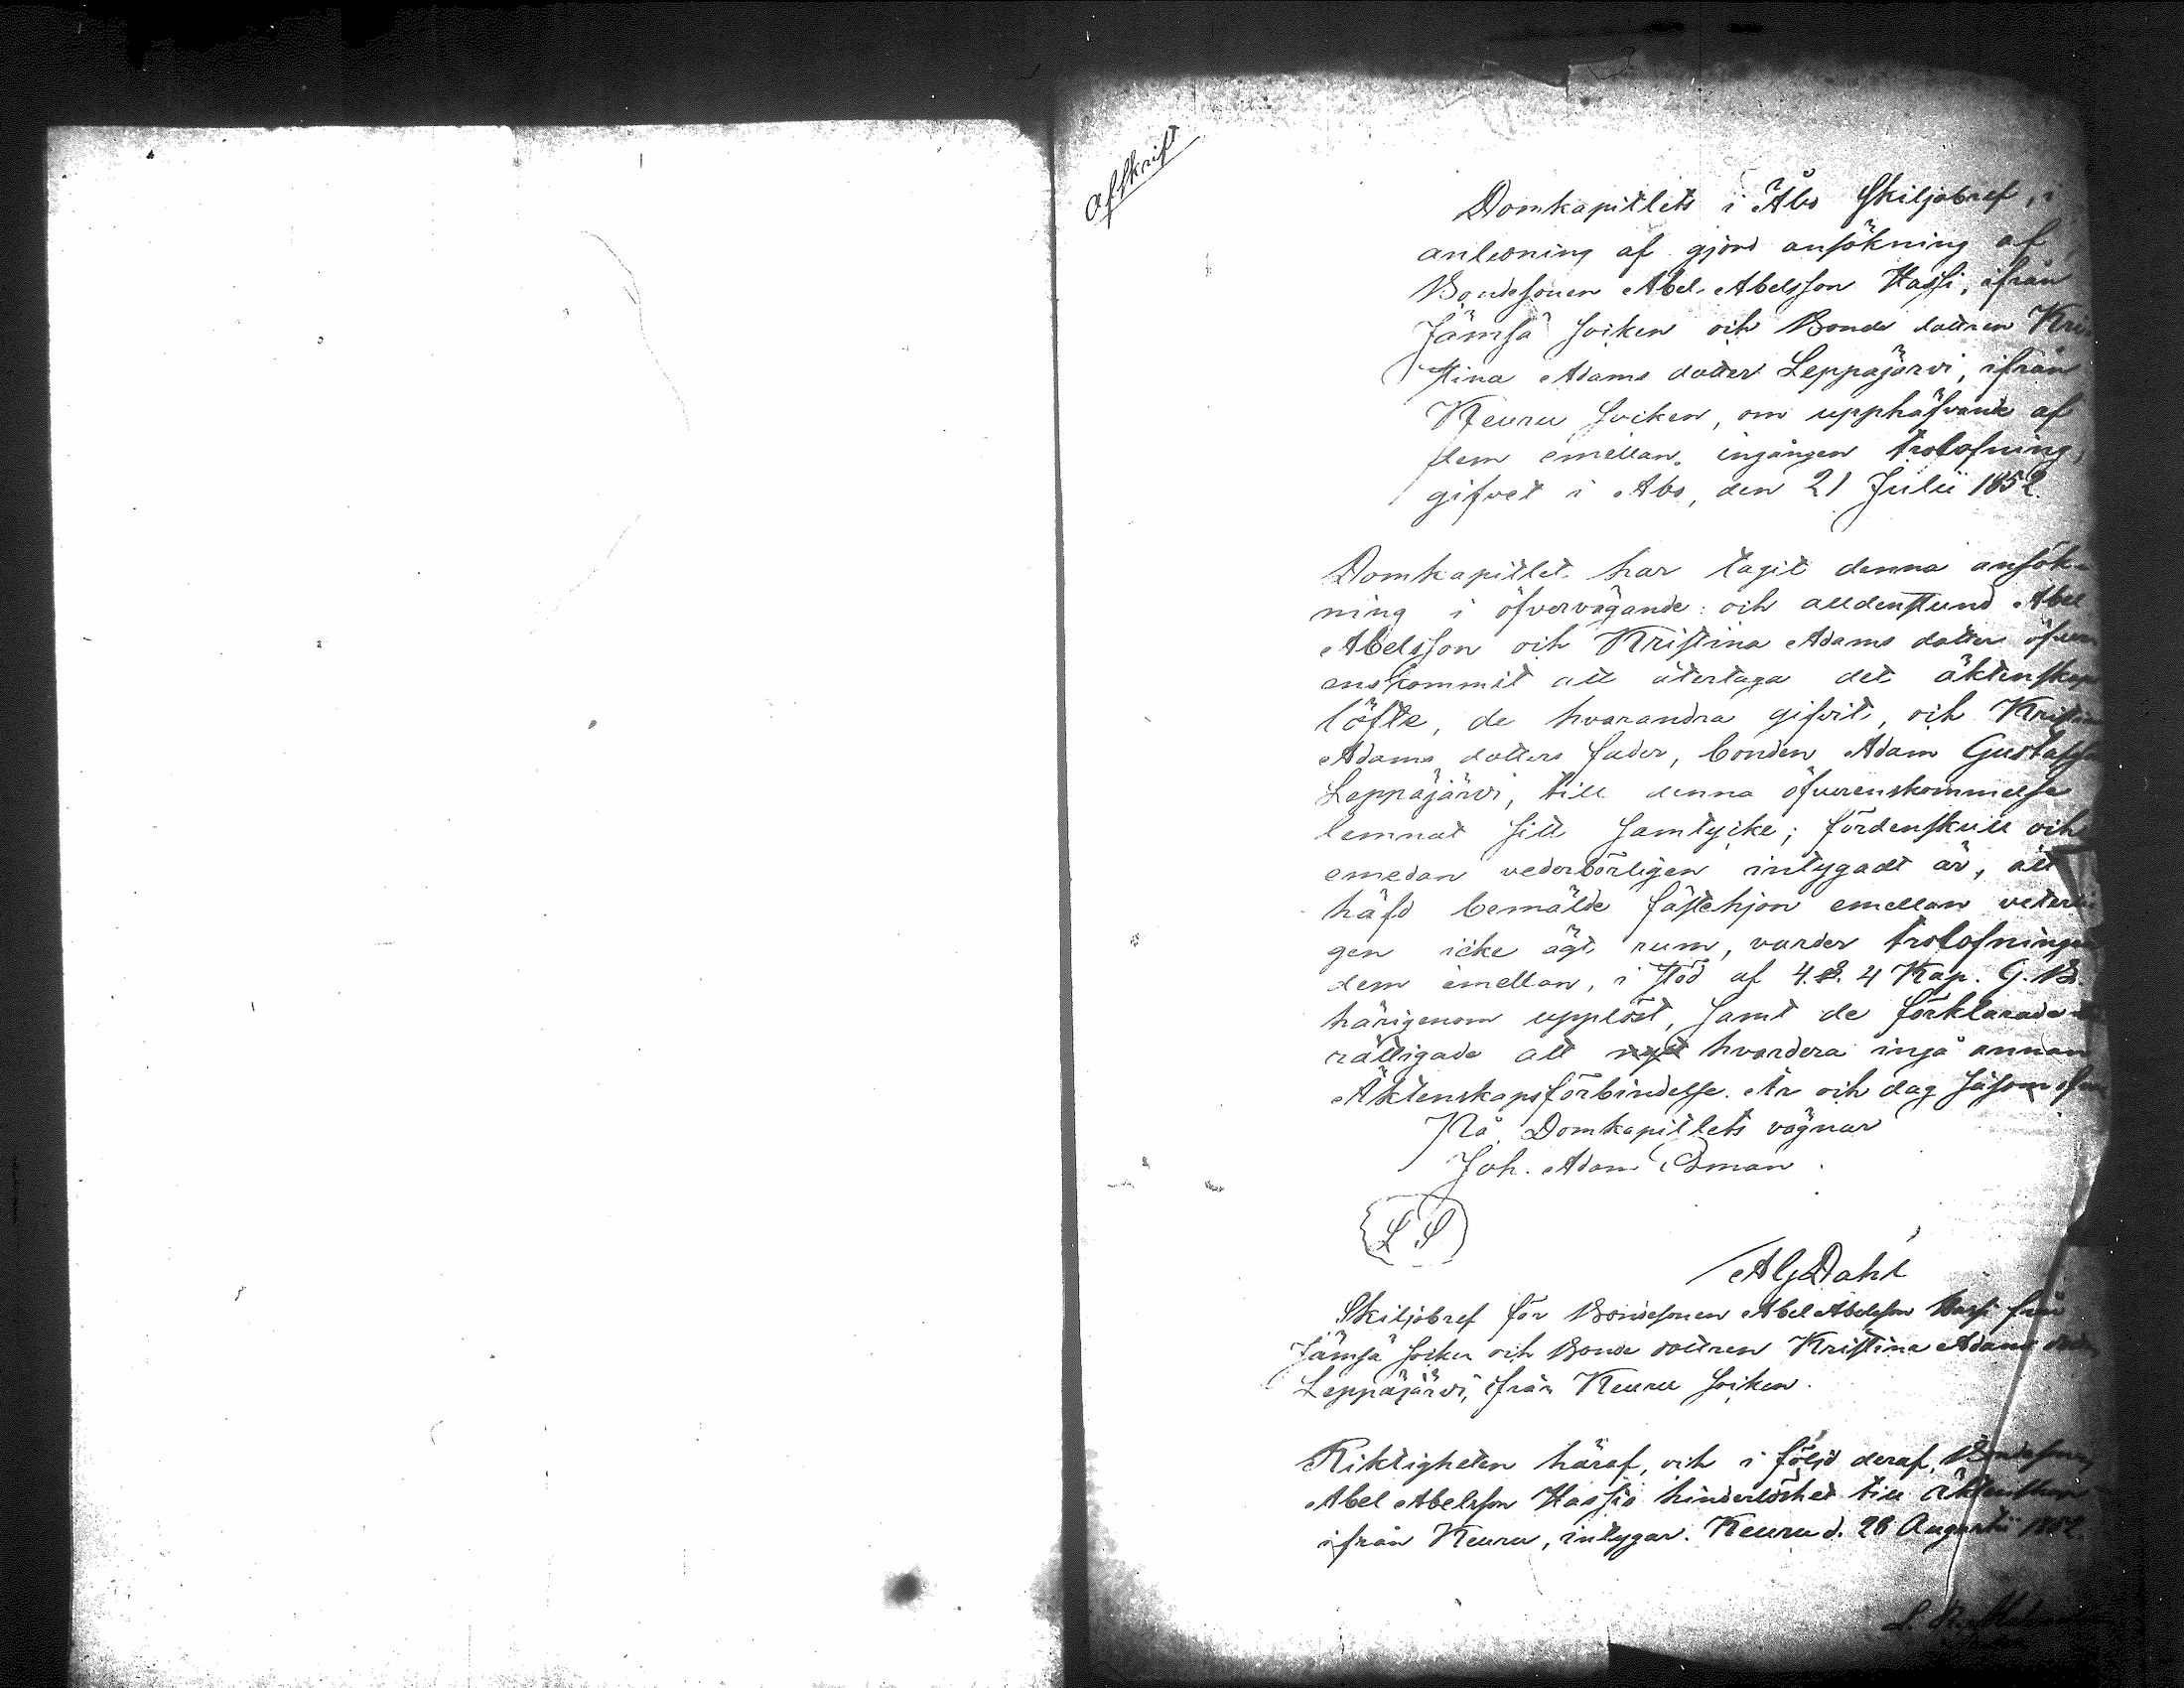 Afskrift
Domkapitlets i Åbo Skiljobref, i
anledning af gjord ansökning af
Bondesonen Abel Abelsson Hassi, ifrån
Jämsä Socken och Bonde dottren Kri
stina Adams dotter Leppäjärvi, ifrån
Keuru Socken, om upphäfvande af
dem emellan ingången trolofning,
gifvet i Åbo, den 21 Julii 1852.
Domkapitlet har tagit denna ansök-
ning i öfvervägande: och alldenstund Abel
Abelsson och Kristina Adams dotter öfver
enskommit att återtaga det äktenskaps
löfte, de hvarandra gifvit, och Kristina
Adams dotters fader, bonden Adam Gustafsson
Leppäjärvi, till denna öfverenskommelse
lemnat sitt samtycke; fördenskull och
emedan vederbörligen intygadt är, att
häfd bemälde fästehjon emellan veterli
gen icke ägt rum, varder trolofningen
dem emellan, i stöd af 4. §. 4 Kap. G. B.
härigenom upplöst, samt de förklarade
rättigade att hvardera ingå annan
Äktenskapsförbindelse. År och dag såsom ofvan
På Domkapitlets vägnar
Joh. Adam Edman.
L S
A G Dahl
Skiljobref för Bondesonen Abel Abelsson Hassi från
Jämsä Socken och Bonde dottren Kristina Adams dotter
Leppäjärvi, ifrån Keuru Socken.
Riktigheten häraf, och i följd deraf, Bondesonen
Abel Abelsson Hassis hinderlöshet till äktenskap
ifrån Keuru, intygar. Keuru d. 28 Augusti 1852.